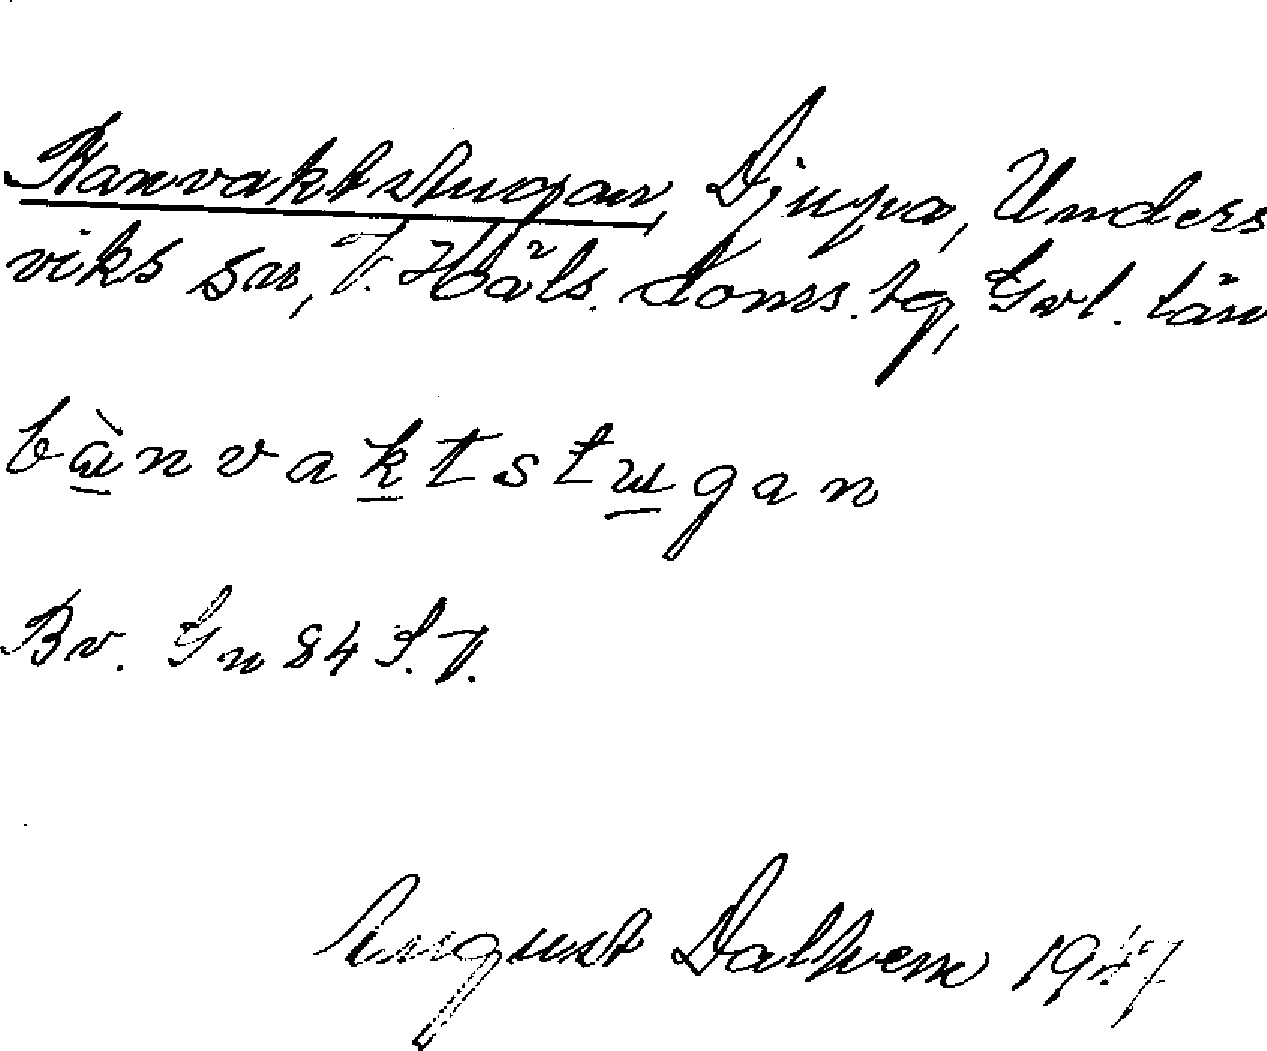 Banvaktstugan, Djupa, Unders
viks sn, V. Häls. doms. tg, Gvl. län
bànvaktstugan
Bv. Gn 84 S.T.
August Dalhem 1947